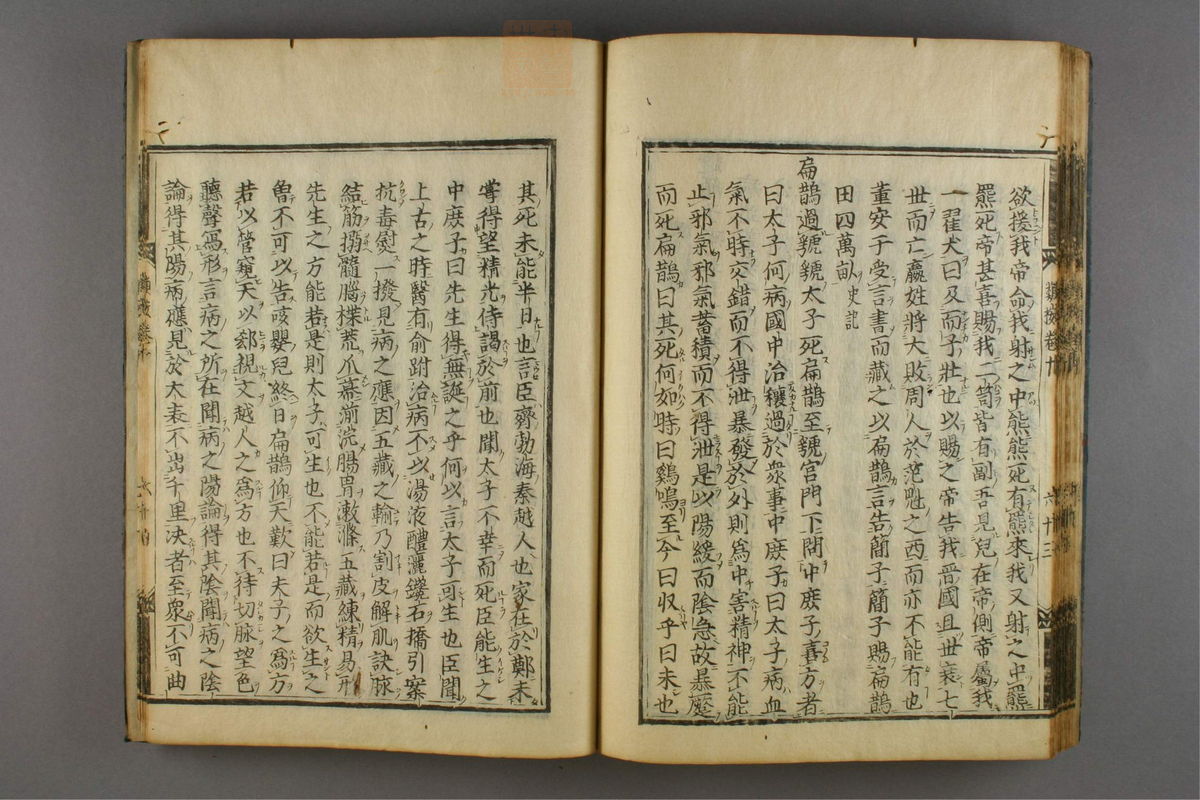 欲援我帝命我射之中熊熊死有羆來我又射之中羆
羆死帝甚喜賜我二笥皆有副吾見兒在帝側帝屬我
一翟犬曰及而子壯也以賜之帝告我晋國且世衰七
世而亡嬴姓將大敗周人於范魁之西而亦不能有也
董安于受言書而藏之以扁鵲言告簡子簡子賜扁鵲
田四萬畝 史記
扁鵲過虢虢太子死扁鵲至虢宮門下問中庶子喜方者
曰太子何病國中治穰過於衆事中庶子曰太子病血
氣不時交錯而不得泄暴發於外則爲中害精神不能
止邪氣邪氣蓄積而不得泄是以陽緩而陰急故暴蹷
而死扁鵲曰其死何如時曰鷄鳴至今曰収乎曰未也
其死未能半日也言臣齊勃海秦越人也家在於鄭未
嘗得望精光侍謁於前也聞太子不幸而死臣能生之
中庶子曰先生得無誕之乎何以言太子可生也臣聞
上古之時醫有俞跗治病不以湯液醴灑鑱石撟引案
抗毒熨一撥見病之應因五藏之輸乃割皮解肌訣脉
結筋搦髓腦揲荒爪幕湔浣腸胃漱滌五藏練精易形
先生之方能若是則太子可生也不能若是而欲生之
曾不可以告咳嬰兒終日扁鵲仰天歎曰夫子之爲方
若以管窺天以郄視文越人之爲方也不待切脉望色
聽聲寫形言病之所在聞病之陽論得其陰聞病之陰
論得其陽病應見於大表不出千里決者至衆不可曲
六十三